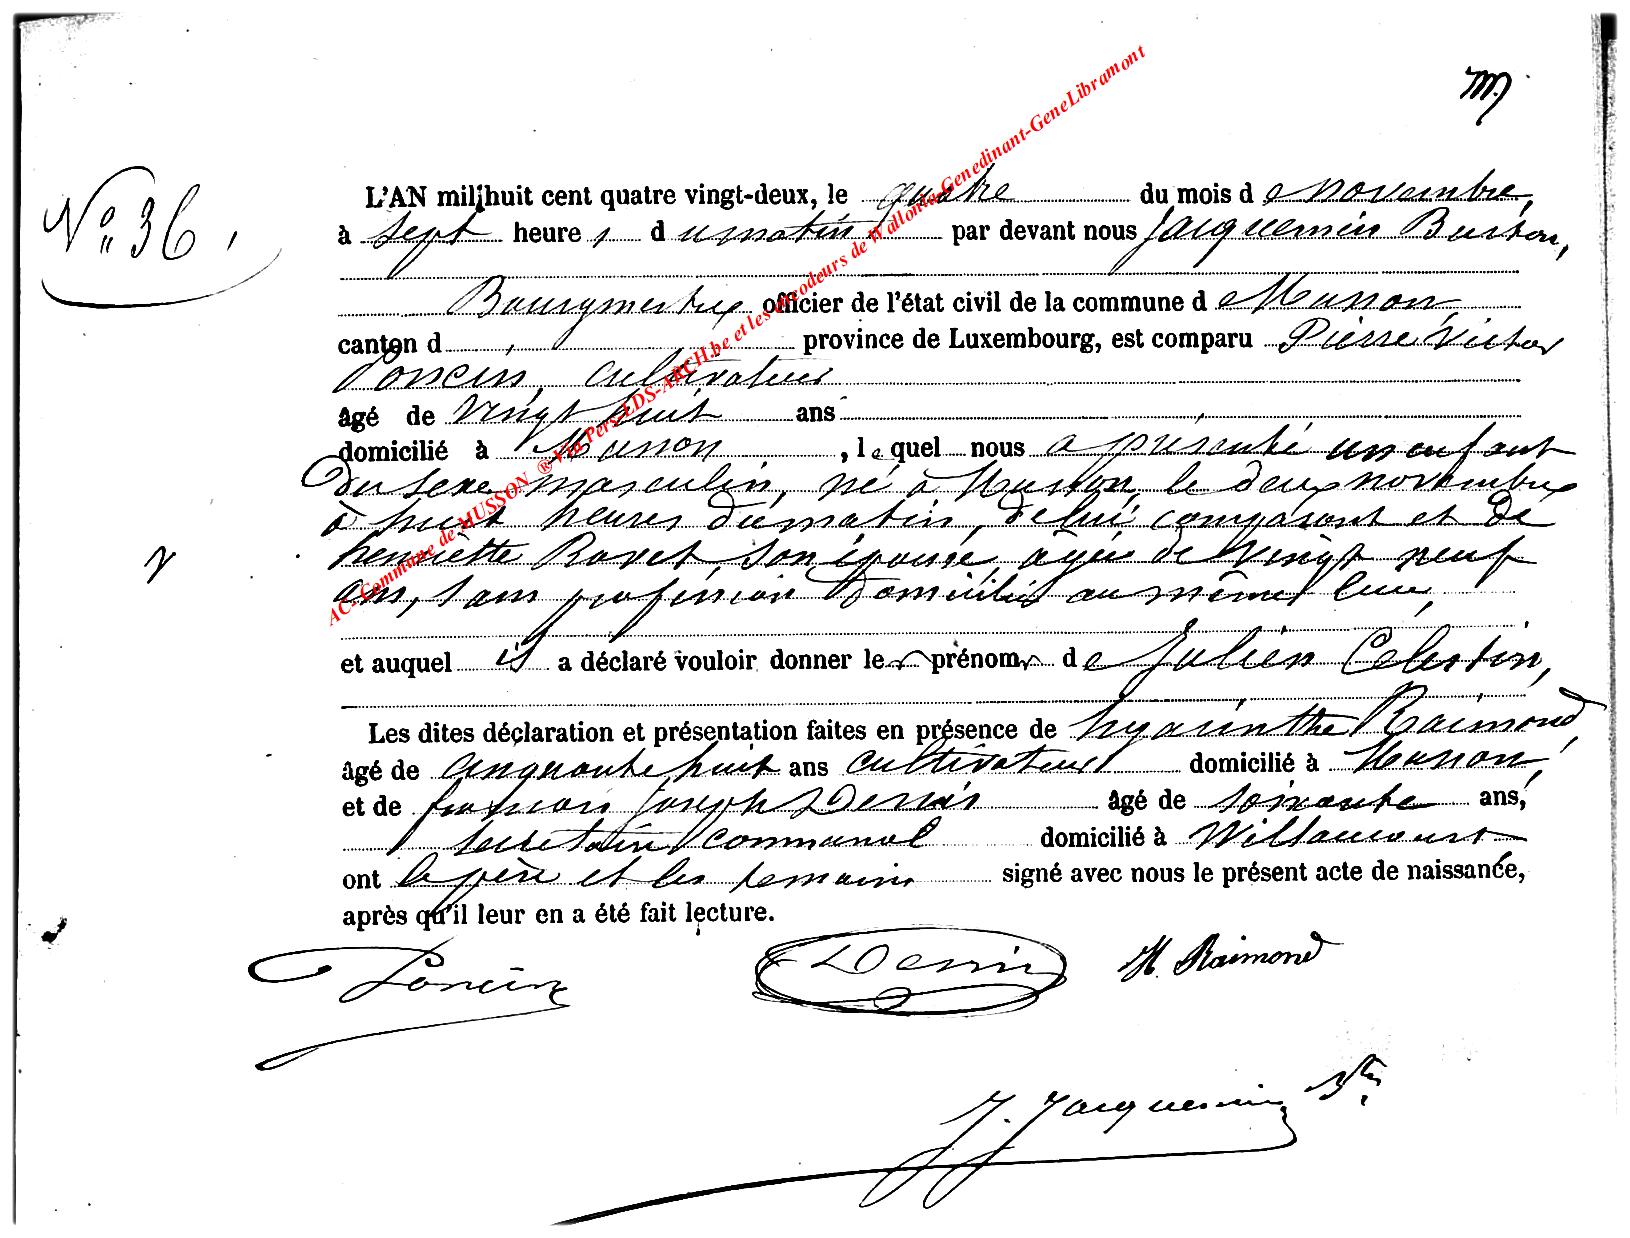 M.
N° 36,
L'AN mil huit cent quatre vingt-deux, le quatre du mois de novembre,
à sept heures du matin par devant nous Jacquemin
Bourgmestre officier de l'état civil de la commune de Musson,
canton d province de Luxembourg, est comparu Pierre Victor
Poncin, cultivateur
âgé de vingt huit ans
domicilié à Musson, lequel nous a présenté un enfant
du sexe masculin, né à Musson, le deux novembre
à huit heures du matin, de lui comparant et de
henriette Ravet, son épouse, agée de vingt neuf
ans, sans profession domiciliée au même lieu,
et auquel il a déclaré vouloir donner les prénoms de Julien Celestin,
Les dites déclaration et présentation faites en présence de hyacinthe Raimond,
âgé de cinquante huit ans cultivateur domicilié à Musson,
et de Joseph Denis âgé de soixante ans,
secretaire communal domicilié à Willancourt
ont le père et les temoins signé avec nous le présent acte de naissance,
après qu'il leur en a été fait lecture.
Poncin Denis H. Raimond
J. Jacquemin
AC- Commune de MUSSON ® Via Pers-LDS-ARCH.be et les décodeurs de Wallonia-Genedinant-GeneLibramont